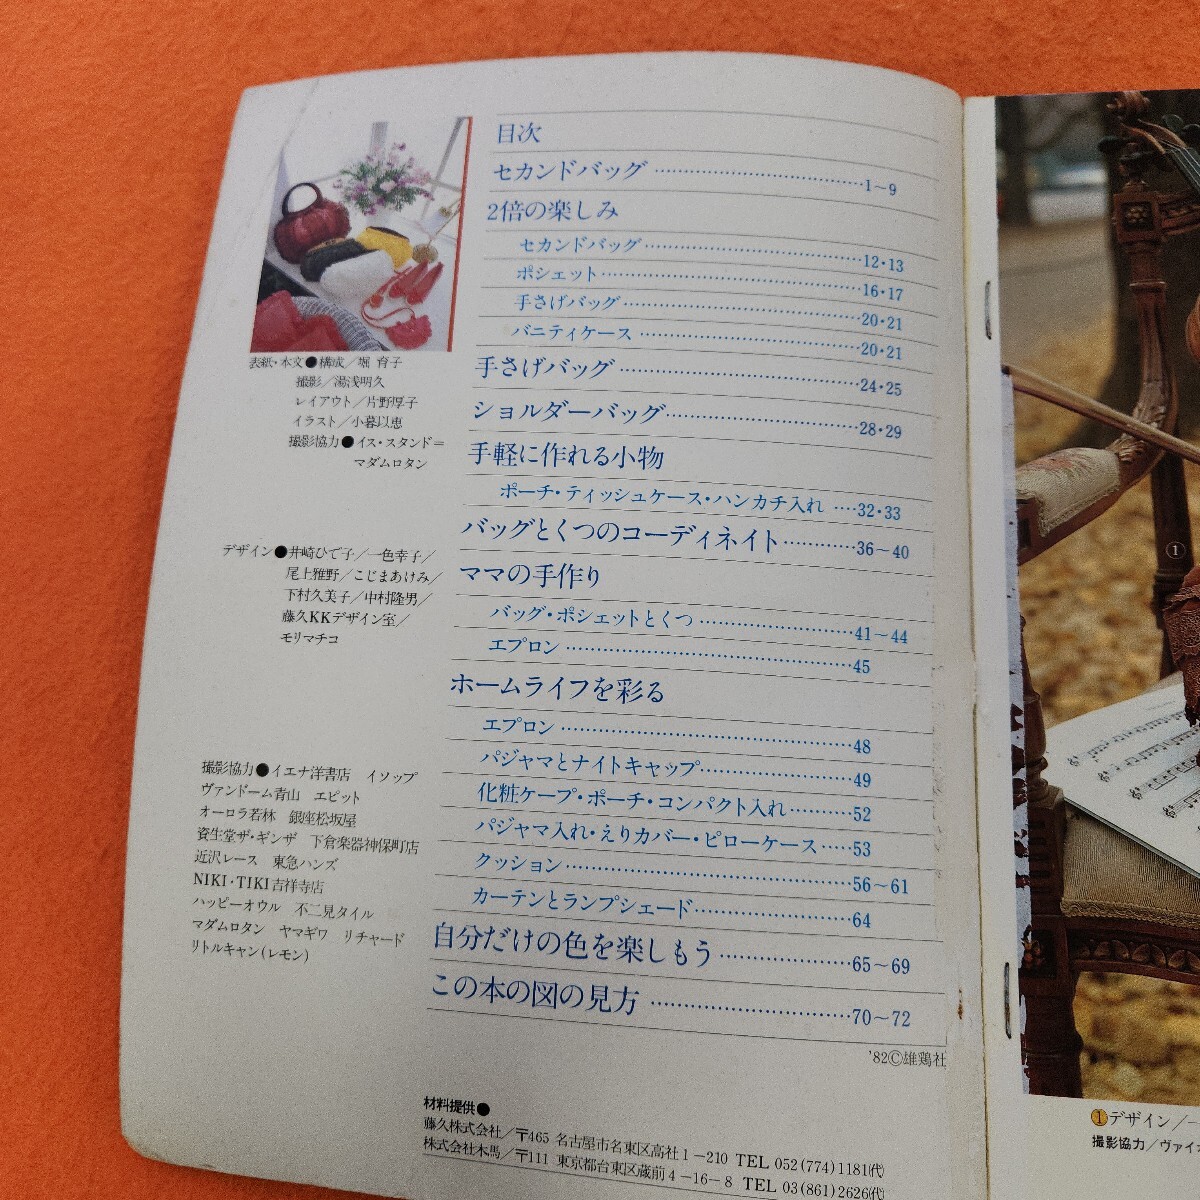 目次
セカンドバッグ……………………………1〜9
2倍の楽しみ
セカンドバッグ……………………………12・13
ポシェット…………………………………16・17
手さげバッグ………………………………20・21
バニティケース……………………………20・21
手さげバッグ………………………………24・25
ショルダーバッグ…………………………28・29
手軽に作れる小物
ポーチ・ティッシュケース・ハンカチ入れ ‥‥32・33
バッグとくつのコーディネイト…………36〜40
ママの手作り
バッグ・ポシェットとくつ……………………41〜44
エプロン………………………………………45
ホームライフを彩る
エプロン………………………………………48
パジャマとナイトキャップ……………………49
化粧ケープ・ポーチ・コンパクト入れ………52
パジャマ入れ・えりカバー・ピローケース……53
クッション……………………………………56〜61
カーテンとランプシェード……………………64
自分だけの色を楽しもう…………………65〜69
この本の図の見方…………………………70〜72
'82Ⓒ雄鶏社
表紙・本文●構成／堀 育子
撮影／湯浅明久
レイアウト／片野厚子
イラスト／小暮以恵
撮影協力●イス・スタンド＝
マダムロタン
デザイン●井崎ひで子／一色幸子／
尾上雅野／こじまあけみ／
下村久美子／中村隆男／
藤久KKデザイン室／
モリマチコ
撮影協力●イエナ洋書店 イソップ
ヴァンドーム青山 エピット
オーロラ若林 銀座松坂屋
資生堂ザ・ギンザ 下倉楽器神保町店
近沢レース 東急ハンズ
NIKI・TIKI吉祥寺店
ハッピーオウル 不二見タイル
マダムロタン ヤマギワ リチャード
リトルキャン(レモン)
材料提供●
藤久株式会社／〒465 名古屋市名東区高社1－210 TEL 052(774)1181㈹
株式会社木馬／〒111 東京都台東区蔵前4－16－8 TEL 03(861)2626㈹
①
①デザイン／
撮影協力／ヴァイオ